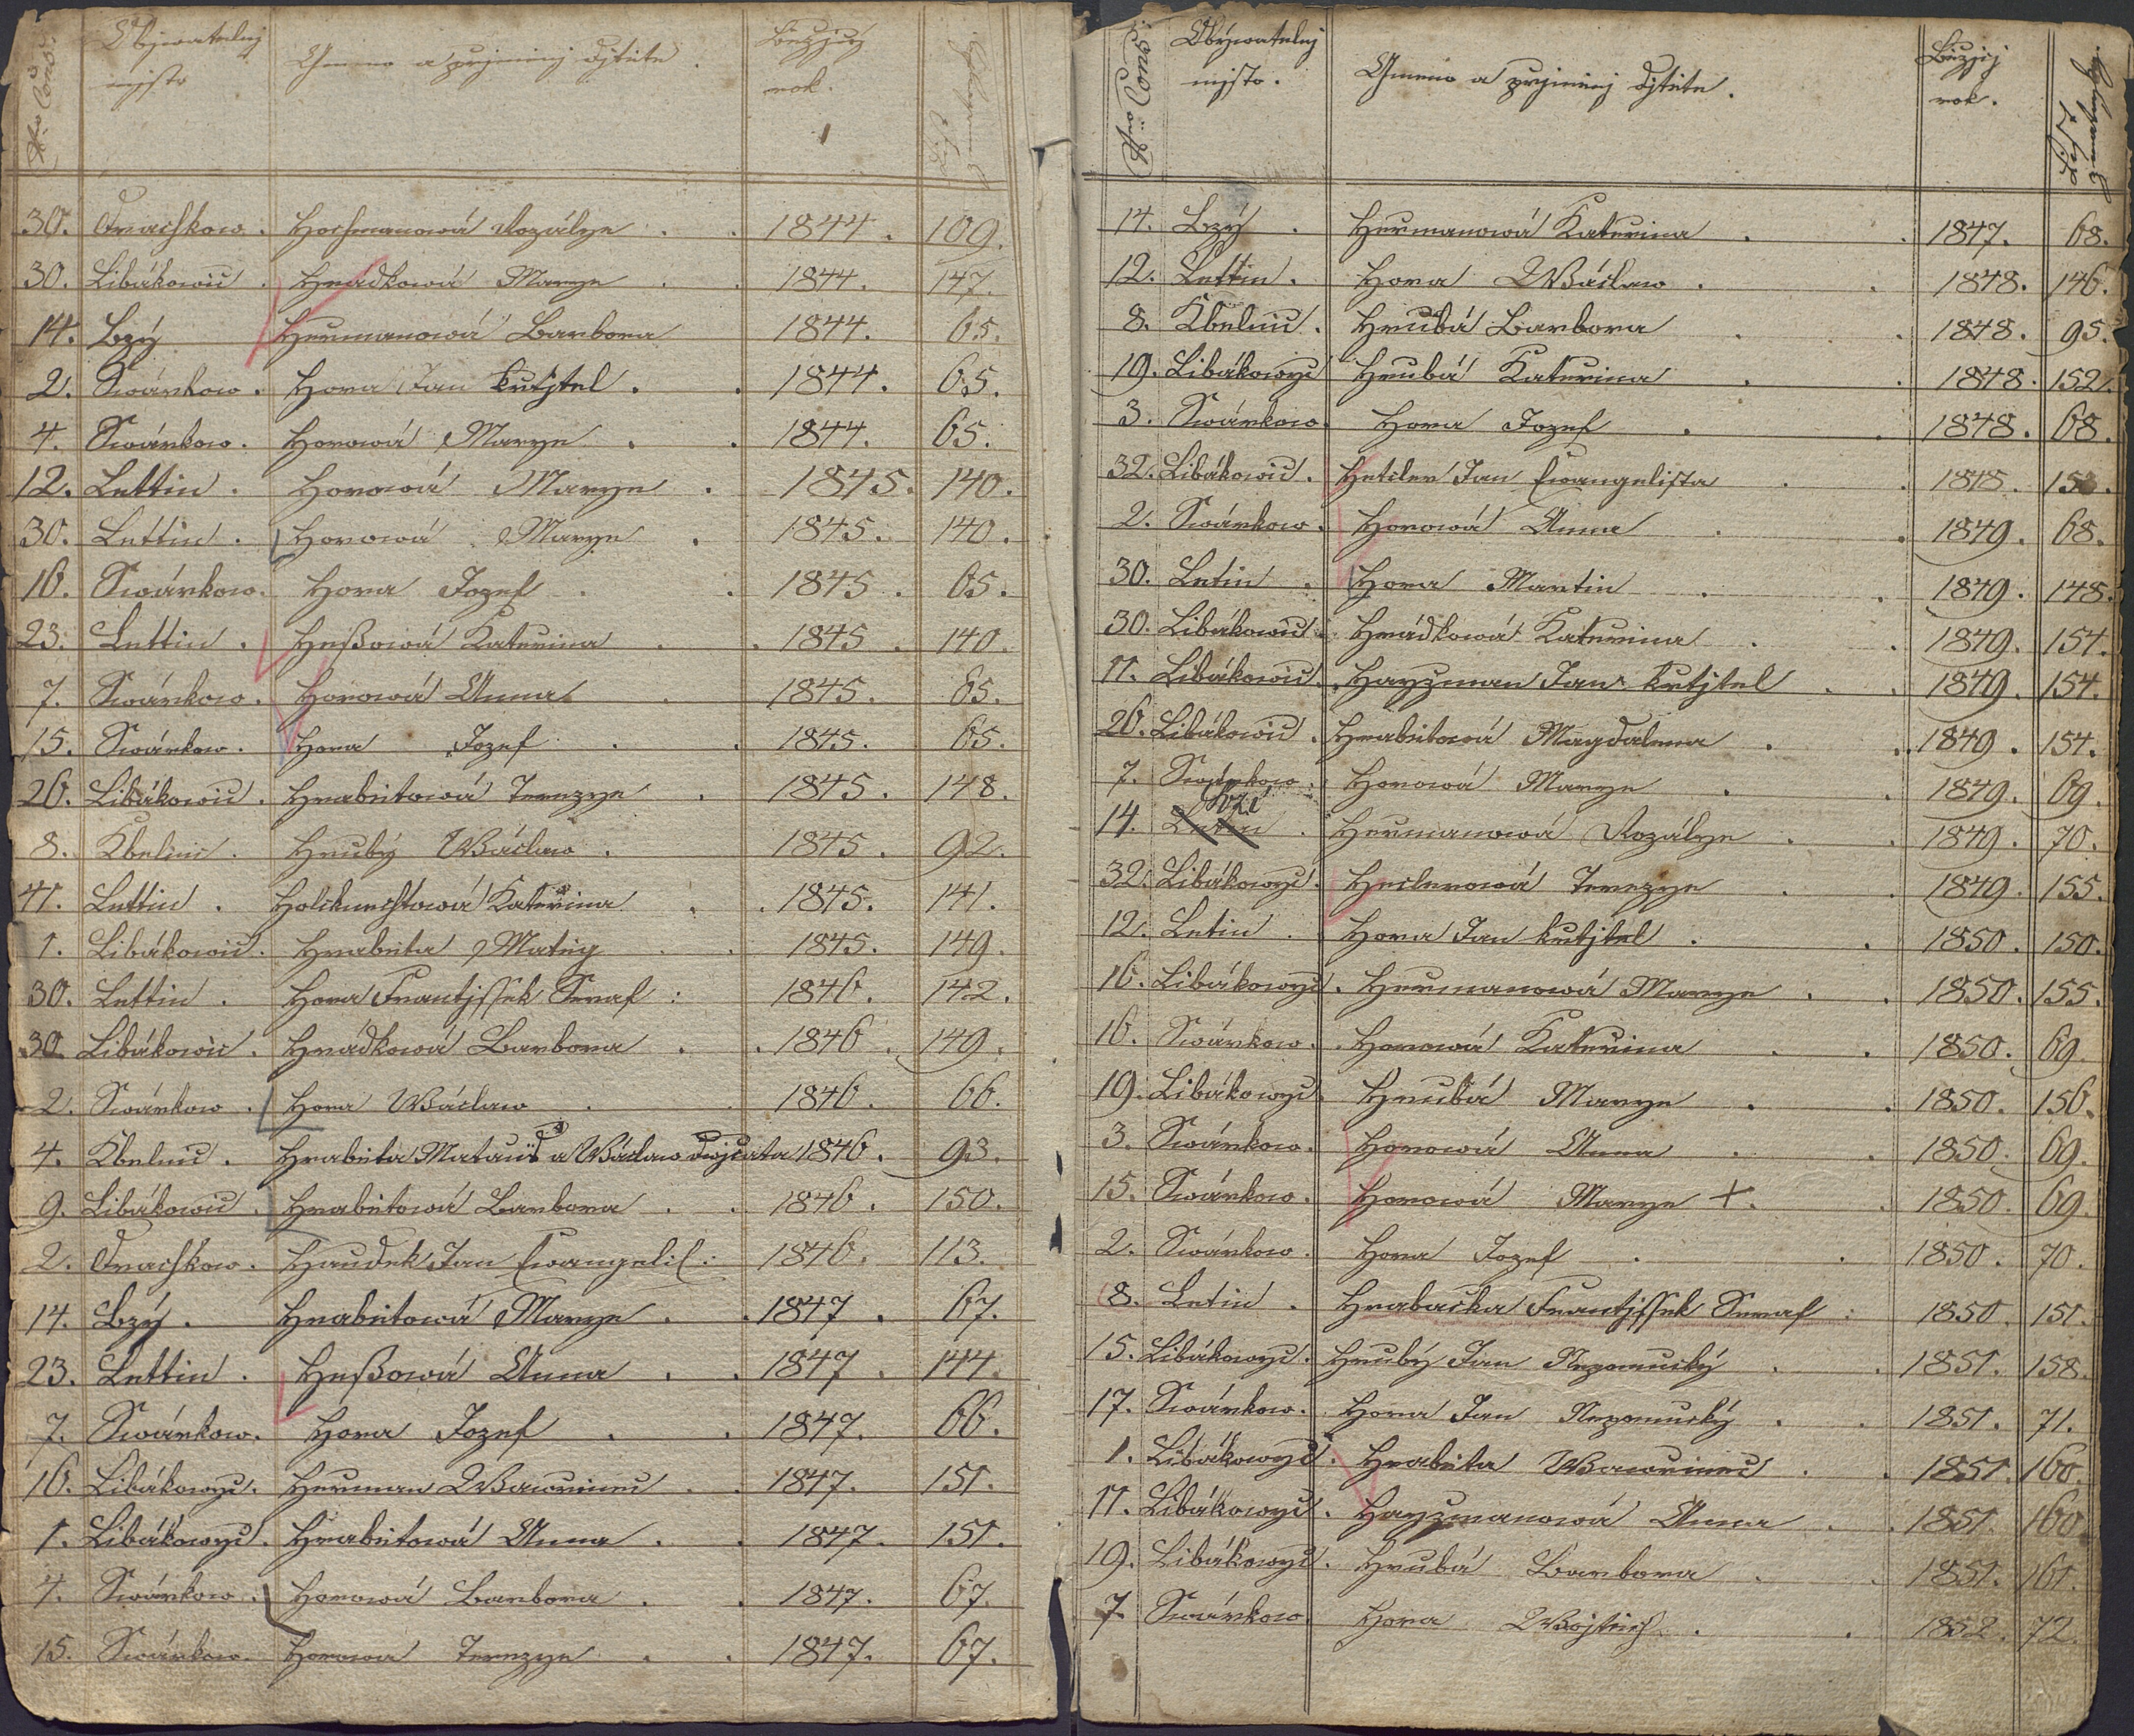 Nro Cons:
Obywatelnj
mjsto
Gmeno a przjmenj djtěte.
Běžjcý
rok.
30. Drachkow. Hochmanowá Rozálye . . 1844. 109.
30. Libákowic . Hrádkowá Marye . . 1844. 147.
14. Lzý Heřmanowá Barbora 1844. 65.
2. Swárkow. Hora Jan křtjtel . . 1844. 65.
4. Swárkow. Horowá Marye . . 1844. 65.
12. Lettin . Horowá Marye . 1845. 140.
30. Lettin . Horowá Marye . 1845. 140.
16. Swárkow. Hora Jozef . . 1845. 65.
23. Lettin . Heßowá Kateřina . . 1845. 140.
7. Swárkow. Horowá Anna . 1845. 65.
15. Swárkow. Hora Jozef . . 1845. 65.
26. Libákowic . Hrabětowá Terezye . 1845. 148.
8. Kbelnic . Hrubý Wáclaw . 1845. 92.
41. Lettin . Kateřina . . 1845. 141.
1. Libákowic. Hraběta Matěg . . 1845. 149.
30. Lettin . Hora Frantjssek Seraf : 1846. 142.
30. Libákowic . Hrádkowá Barbora . . 1846. 149.
2. Swárkow . Hora Wáclaw . . 1846. 66.
4. Kbelnic . Hraběta Matauš a Wáclaw dwojčata 1846. 93.
9. Libákowic . Hrabětowá Barbora . . 1846. 150.
2. Drachkow. Haudek Jan Ewangelis: 1846. 113.
14. Lzý . Hrabětowá Marye . . 1847. 67.
23. Lettin . Heßowá Anna . . 1847. 144.
7. Swárkow. Hora Jozef . . 1847. 66.
16. Libákowyc. Heřman Wawřinec . . 1847. 151.
1. Libákowyc. Hrabětowá Anna . . 1847. 151.
4. Swárkow . Horowá Barbora . . 1847. 67.
15. Swárkow. Horowa Terezye . . 1847. 67.
Nro Cons:
Obýwatelnj
mjsto.
Gmeno a przjmenj djtěte.
Běžjcý
rok.
14. Lzý . Heřmanowá Kateřina . . 1847. 68.
12. Lettin. Hora Wáclaw . . 1848. 146.
8. Kbelnic . Hrubá Barbora . . 1848. 95.
19. Libákowyc Hrubá Kateřina . . 1848. 152.
3. Swárkow. Hora Jozef . . 1848. 68.
32. Libákowic. Hetcler Jan Ewangelista . . 1848. 153.
2. Swárkow. Horowá Anna . . 1849. 68.
30. Letin . Hora Martin . . 1849. 148.
30. Libákowic. Hrádkowá Kateřina . . 1849. 154.
11. Libákowic. Hayzman Jan křtjtel . . 1849. 154.
26. Libákowic. Hrabětowá Magdalena . . 1849. 154.
7. Swárkow . Horowá Marye . . 1849. 69.
14. Letin Lzí . Heřmanowá Rozálye . . 1849. 70.
32. Libákowyc. Heclerowá Terezye . . 1849. 155.
12. Letin . Hora Jan křtjtel . . 1850. 150.
16. Libákowyc. Heřmanowá Marye . . 1850. 155.
16. Swárkow. Horowá Kateřina . . 1850. 69.
19. Libákowyc. Hrubá Marye . . 1850. 156.
3. Swárkow. Horowá Anna . . 1850. 69.
15. Swárkow. Horowá Marye +. . 1850. 69.
2. Swárkow. Hora Jozef . . 1850. 70.
8. Letin . Hrabačka Frantjssek Seraf : 1850. 151.
15. Libákowyc. Hrubý Jan Nepomucký . . 1851. 158.
17. Swárkow. Hora Jan Nepomucký . . 1851. 71.
1. Libákowyc. Hraběta Wawřinec . . 1851. 160.
11. Libákowyc. Hayzmanowá Anna . . 1851. 160.
19. Libákowyc. Hrubá Barbora . . 1851. 161.
7. Swárkow. Hora Wojtěch . . 1852. 72.